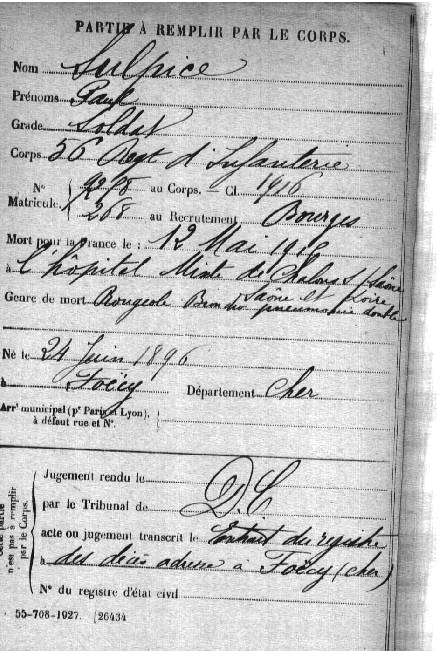 PARTIE À REMPLIR PAR LE CORPS.
Nom Sulpice
Prénoms Paul
Grade Soldat
Corps 56 Regt d'Infanterie
N° au Corps. — Cl. 1916
Matricule. 268 au Recrutement Bourges
Mort pour la France le : 12 Mai
à l'hôpital Mixte de Chalons s/Saône
Saône et Loire
Genre de mort Rougeole Broncho pneumonie double
Né le 24 Juin 1896
à Foëcy Département Cher
Arrt municipal (pr Paris et Lyon),
à défaut rue et N°.
Cette partie
n'est pas à remplir
par le Corps.
Jugement rendu le
par le Tribunal de D.C
acte ou jugement transcrit le Extrait du registre
à des décès adressé à Foëcy (Cher)
N° du registre d'état civil
55-708-1927. [26434